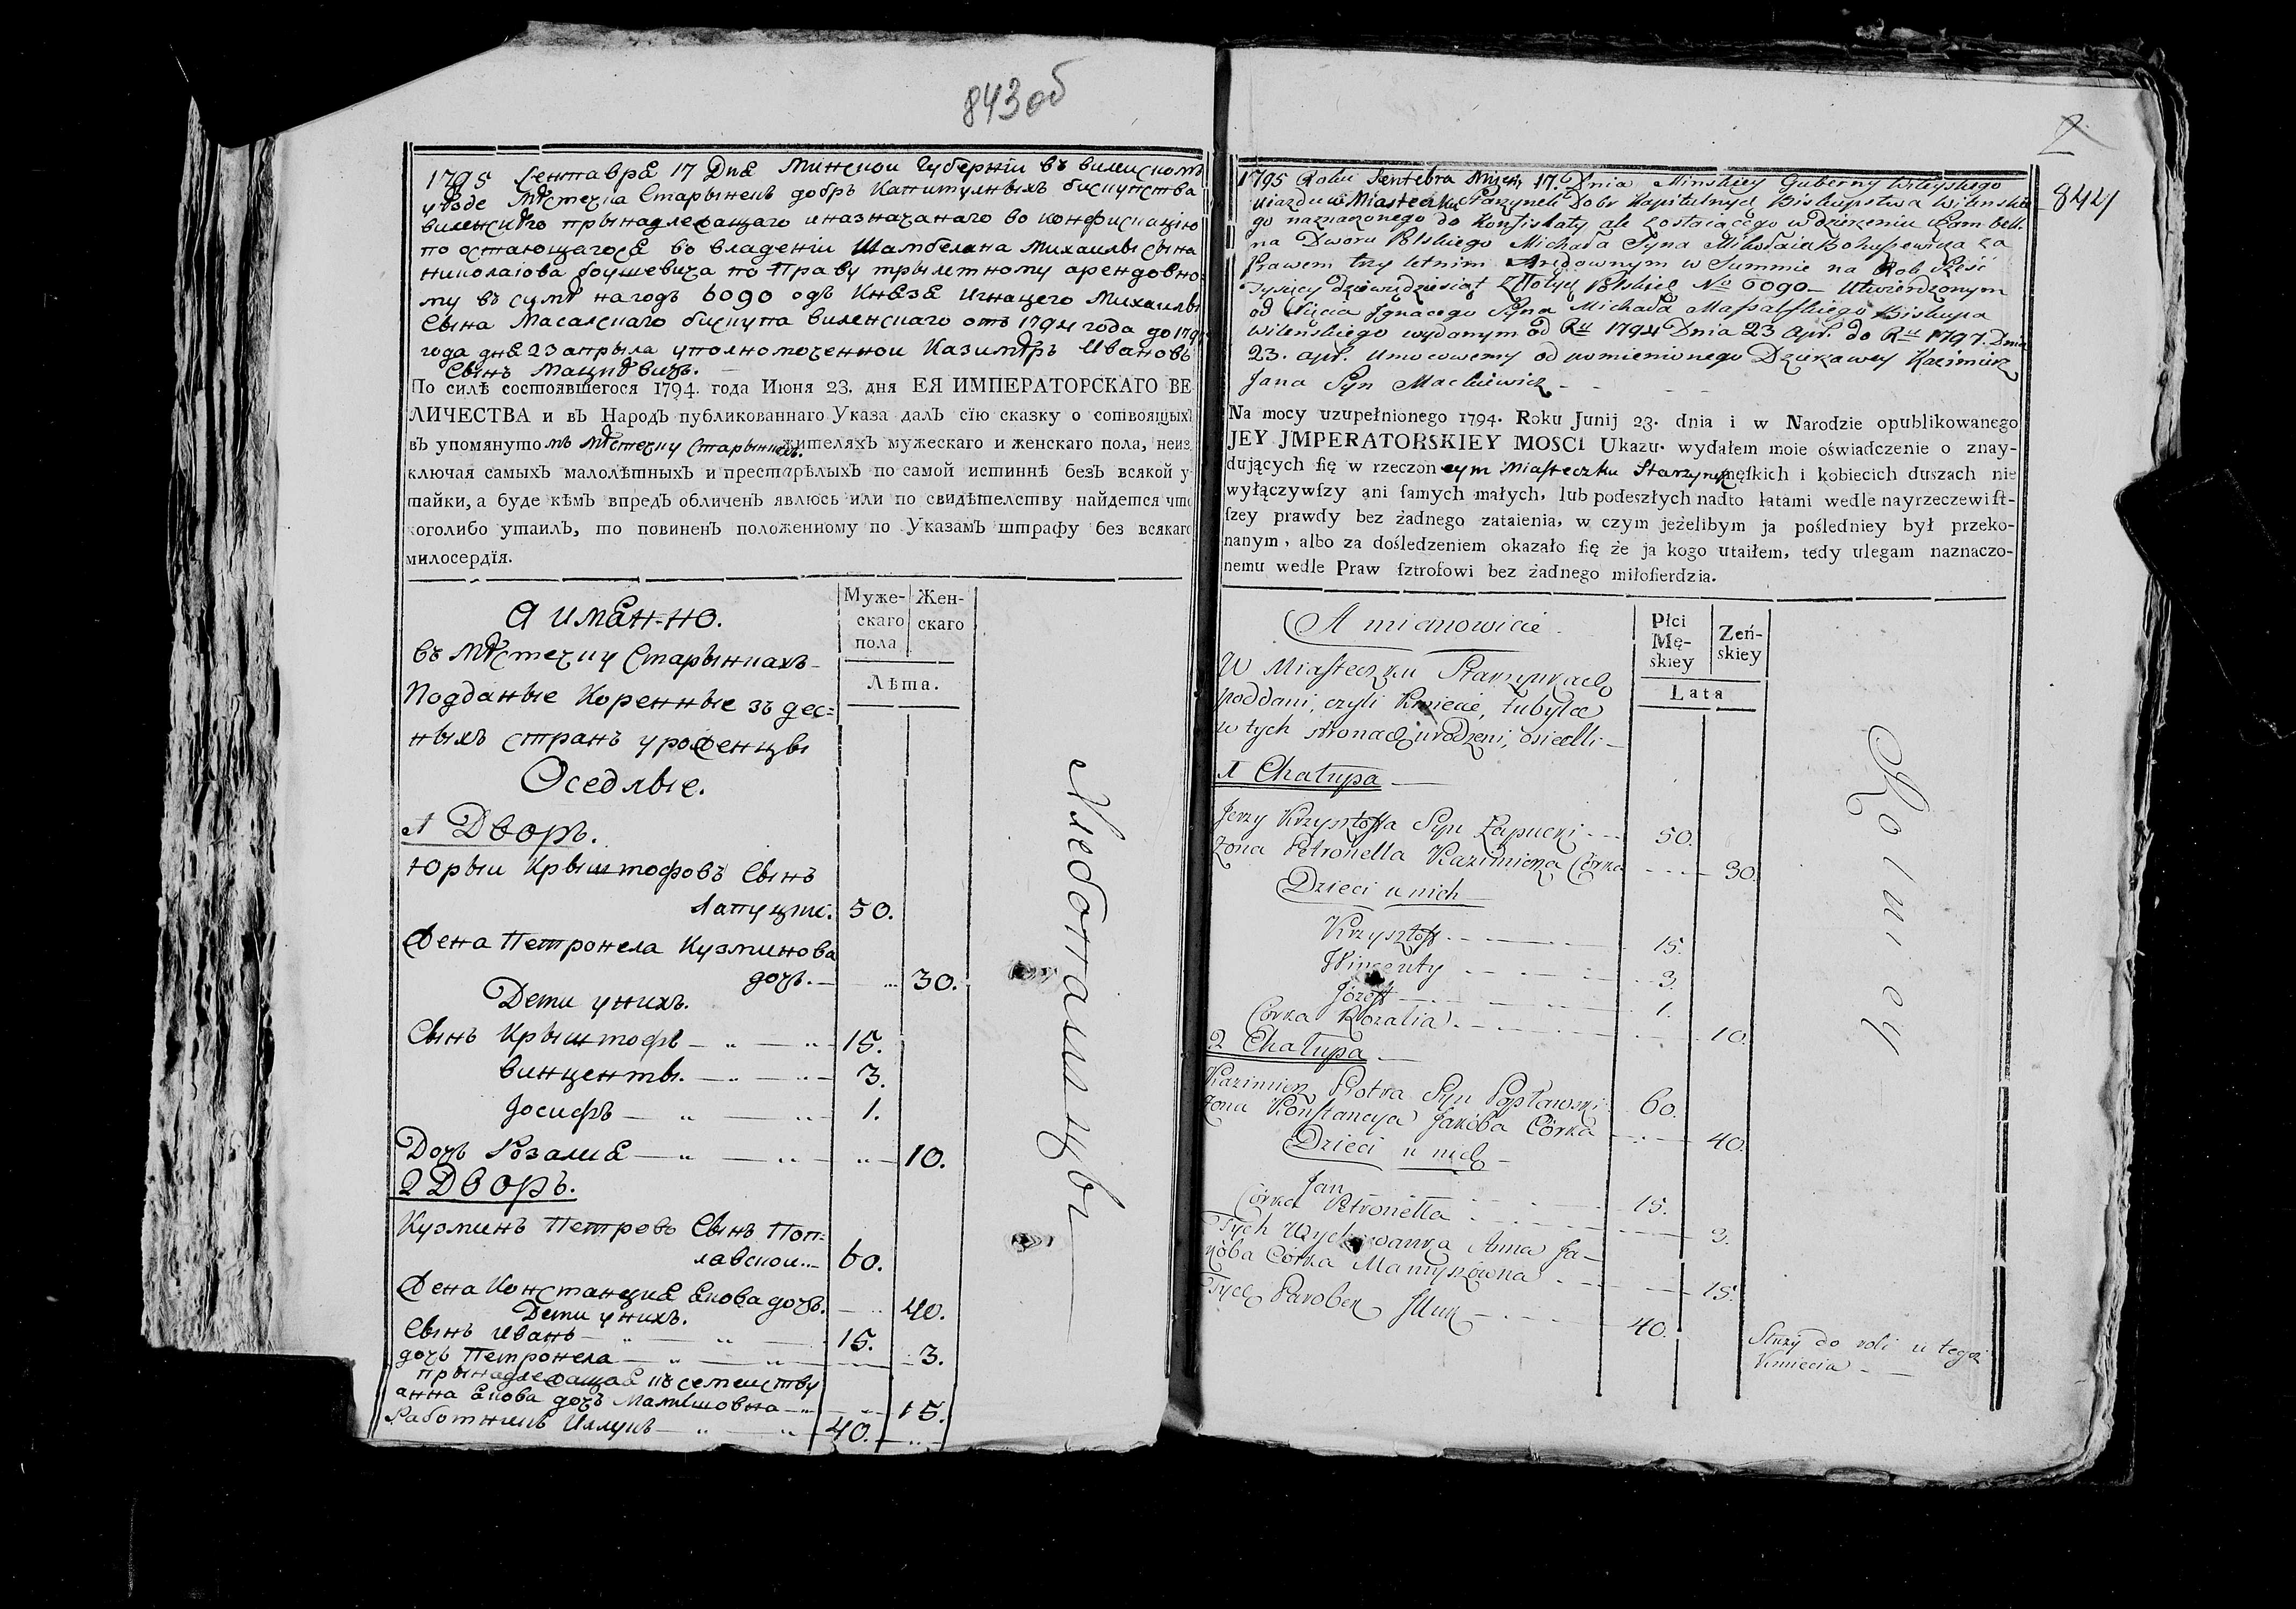 843 об
1795 Сентабра 17 Дна Минскои Губерніи въ вилеиском
уѣзде мѣстечка Старынекъ добръ Капитулныхъ бискупства
виленскаго прынадлежащаго иназначанаго во конфискацію
по остающагоса во владеніи Шамбелана Михаилы сына
николаюва богушевича по Праву трылетному арендовно
му въ сумѣ нагодъ 6090 одъ Кназа Игнацего Михаилы
Сына Масалскаго бискупа виленскаго отъ 1794 года до 179
года дна 23 апрыла уполномоченнои Казимѣръ Ивановъ
Сынъ Мацкѣвичъ.
По силѣ состоявшегося 1794. года Июня 23. дня ЕЯ ИМПЕРАТОРСКАГО ВЕ
ЛИЧЕСТВА и въ Народъ публикованнаго Указа далъ сїю сказку о сотвоящых
въ упомянутомъ мѣстечку Старынкахъ жителяхъ мужескаго и женскаго пола, неиз
ключая самыхъ малолѣтныхъ и престарѣлыхъ по самой истиннѣ безъ всякой у
тайки, а буде кѣмъ впредъ обличенъ явлюсь или по свидѣтелству найдется что
коголибо утаилъ, то повиненъ положенному по Указамъ штрафу без всякаго
милосердїя.
А имано.
Муже-
скаго
пола
Жен-
скаго
Лѣта.
въ мѣстечку Старынкахъ
Подданые Коренные зъ дес=
ныхъ странъ уроженцы
Оседлые.
1 Дворъ.
Юрыи Крыштофовъ Сынъ
Лапуцки. 50.
Жена Петронела Кузминова
дочъ. 30.
Дети унихъ.
Сынъ Крыштофъ 15.
винценты. 3.
Іосифъ 1.
Дочъ Розалиа 10.
2 Дворъ.
Кузминъ Петровъ Сынъ Поп=
лавскои 60.
Жена Констанциа Акова дочъ. 40.
Дети унихъ.
Сынъ Иванъ 15.
дочъ Петронела 3.
прынадлежащаа къ семеиству
анна Акова дочъ Мамышовна 15.
Работникъ Иллукъ 40.
Хлебопашцы
2
844
1795 Roku Sentebra Mca 17. Dnia Minskiey Guberny Wileyskiego
Ujazdu w Miasteczku Starzynek Dobr Kapitulnych Biskupstwa Wilenskie
go naznaczonego do Konfiskaty ale zostaiącego w dzierżeniu Szambell.
na Dworu Polskiego Michała Syna Mikołaia Bohuszewicza za
Prawem trzy letnim Arędownym w Summie na Rok Sześć
Tysięcy dziewiędziesiąt Złłotych Polskich No 6090 Utwierdzonym
od Xięcia Jgnacego Syna Michała Massalskiego Biskupa
Wileńskiego wydanym od Ru 1794 Dnia 23 Apr. do Ru 1797. Dnia
23. apr. Umocowanny od pomienionego Dzierżawcy Kazimierz
Jana Syn Mackiewicz
Na mocy uzupełnionego 1794. Roku Junij 23. dnia i w Narodzie opublikowanego
JEY JMPERATORSKIEY MOSCI Ukazu. wydałem moie oświadczenie o znay-
dujących ſię w rzeczonym Miasteczku Starzynk męſkich i kobiecich duszach nie
wyłączywſzy ani ſamych małych, lub podeszłych nadto łatami wedle nayrzeczewiſt-
ſzey prawdy bez żadnego zataienia, w czym jeżelibym ja poślednięy był przeko-
nanym, albo za dośledzeniem okazało ſię że ja kogo utaiłem, tedy ulegam naznaczo-
nemu wedle Praw ſztrofowi bez żadnego miłoſierdzia.
A mianowicie
Płci
Mę-
skiey
Zeń-
skiey
Lata
W Miasteczku Starzynkach
poddani, czyli Kmiecie, tubylce
w tych stronach urodzeni, osiedli
1 Chałupa
Jerzy Krzysztoffa Syn Łapucki 50.
Zona Petronella Kazimierza Córka 30.
Dzieci u nich
Krzysztoff 15.
Wincenty 3.
Józeff 1.
Córka Rozalia 10.
2 Chałupa
Kazimierz Piotra Syn Popławski 60.
Zona Konstancya Jakóba Córka 40.
Dzieci u nich
Jan 15.
Córka Petronella 3.
Tych Wychowanka Anna Ja-
kóba Córka Mamyszówna 15.
Tych Parobek Jlluk 40.
Służy do roli u tegoż
Kmiecia
Rolnicy